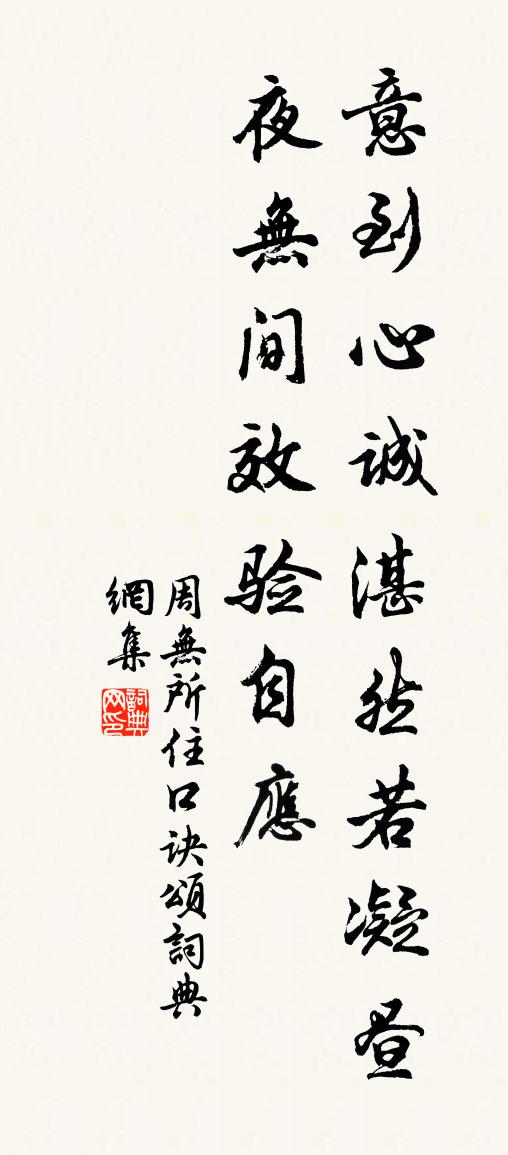 意到心诚湛然若凝昼
夜無间效验自應
周無所住口诀頌詞典
網集
詞典
网印